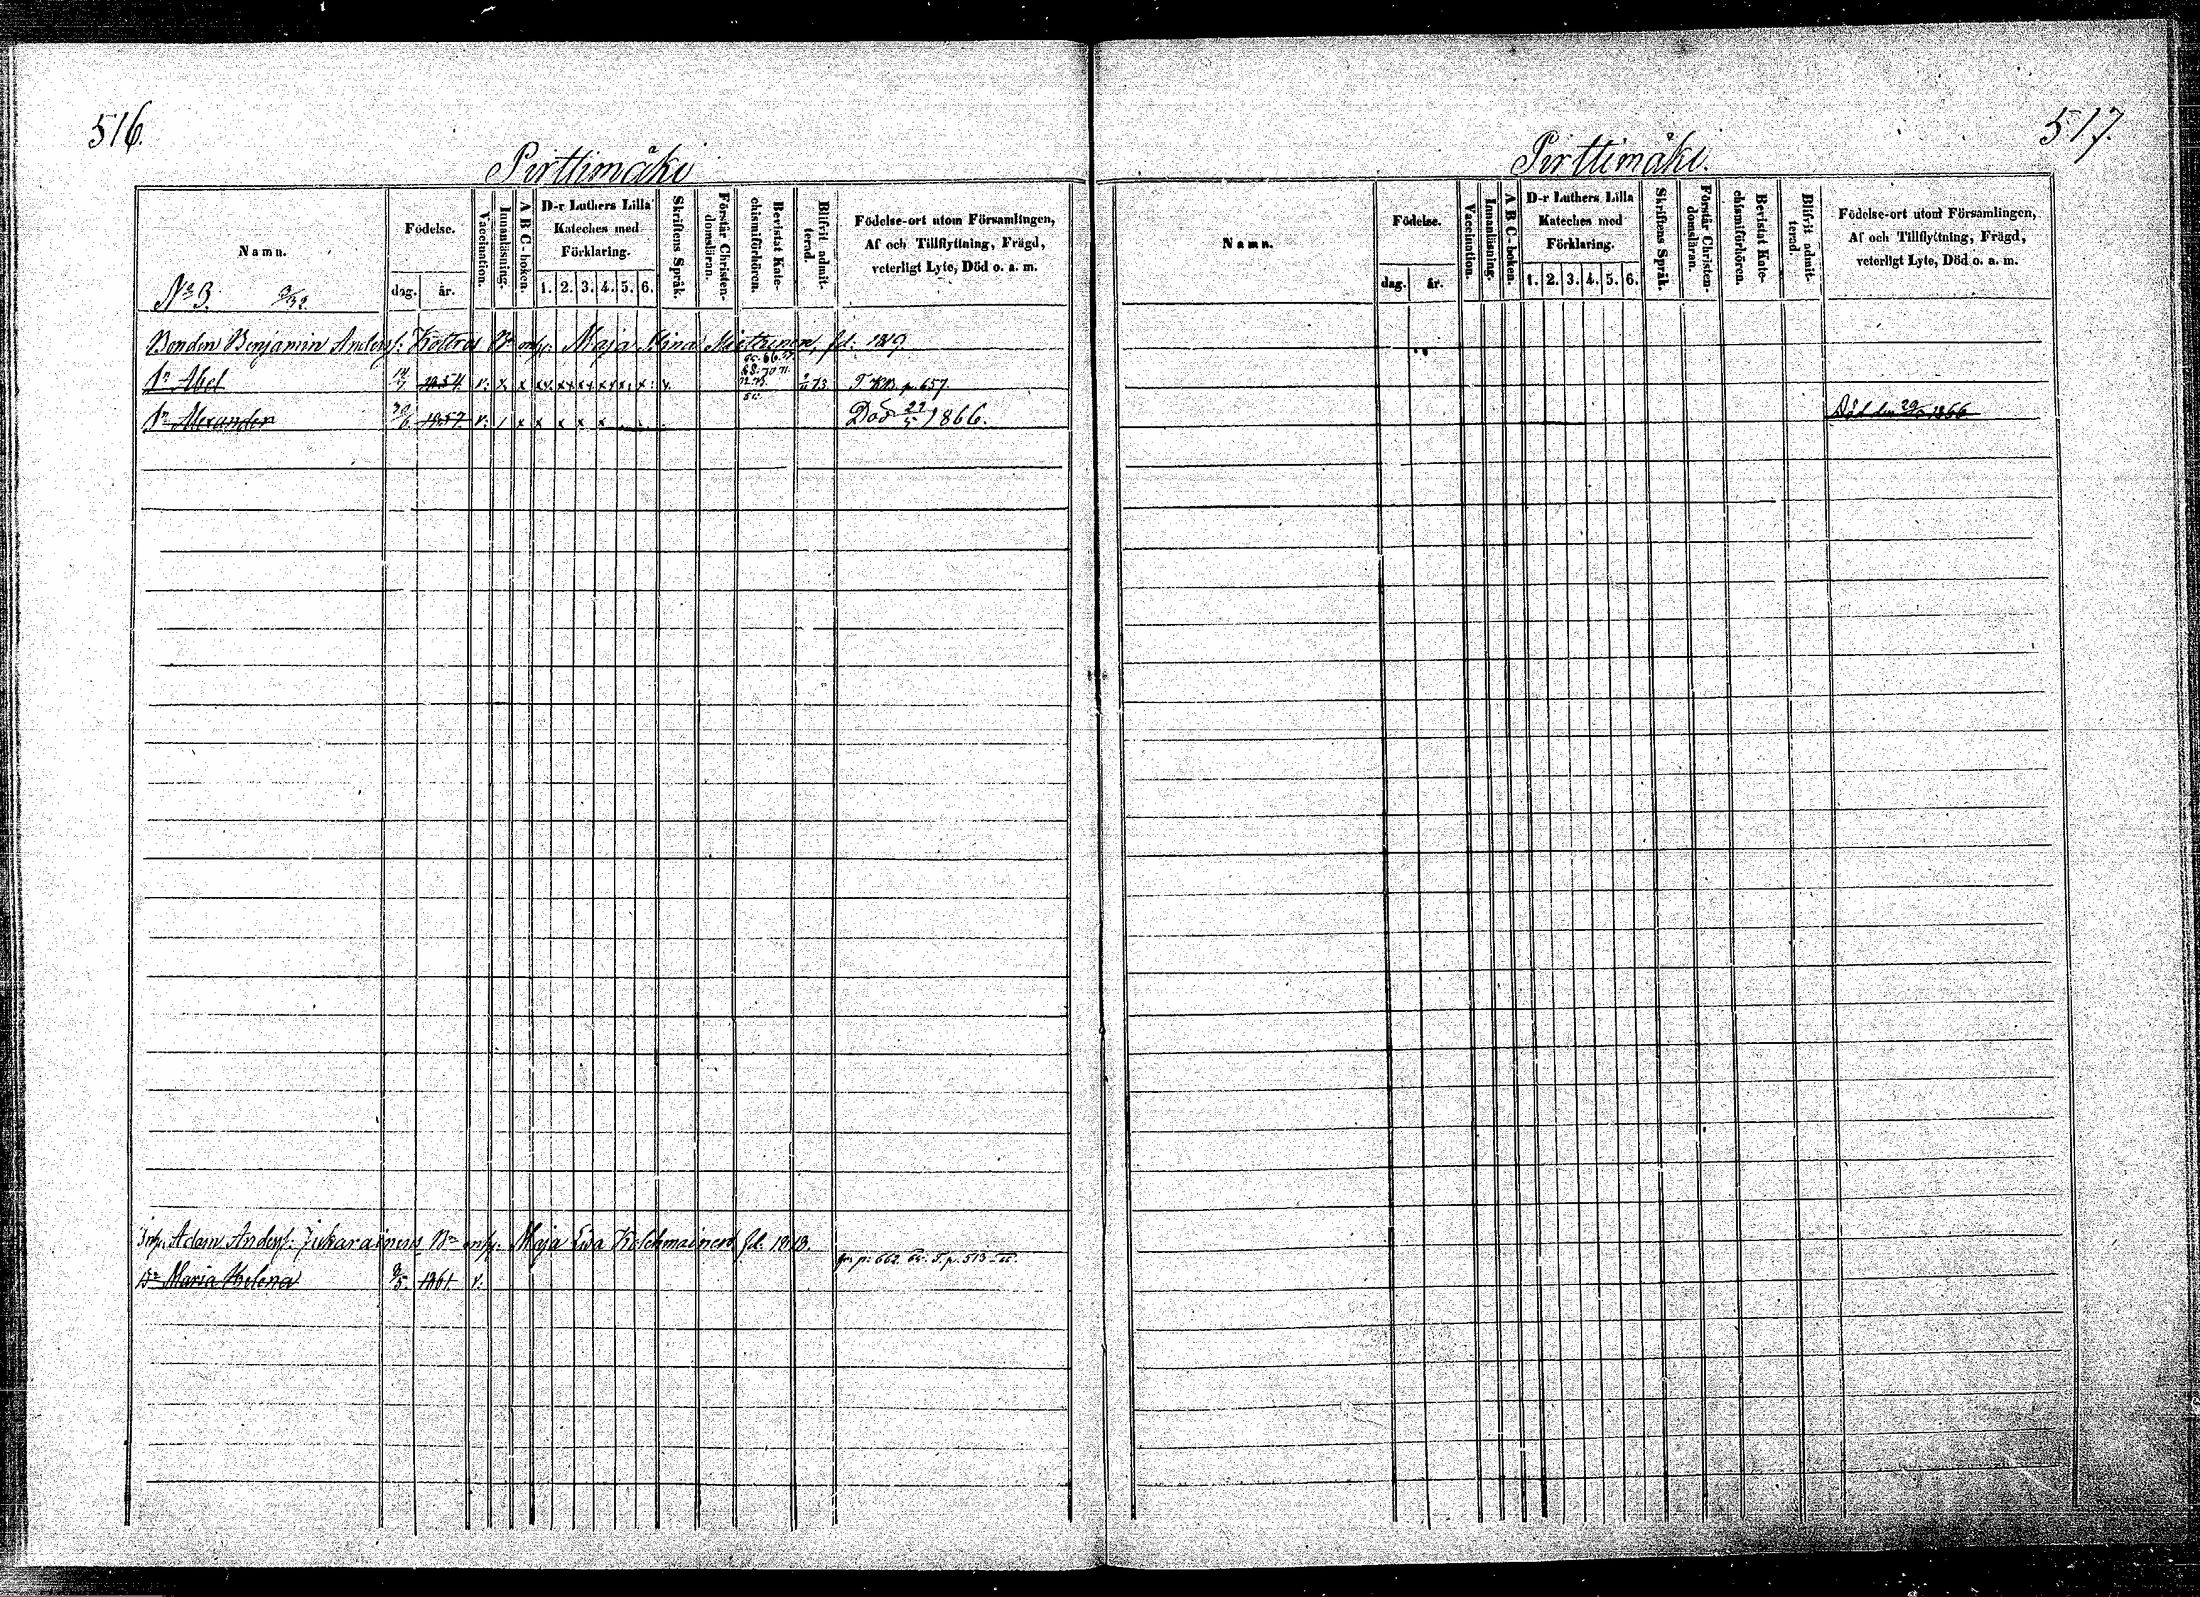 516.
Pirttimåki
Namn.
Födelse.
dag. år.
Vaccination.
Innanläsning.
A B C-boken.
D-r Luthers Lilla
Kateches med
Förklaring.
1. 2. 3. 4. 5. 6.
Skriftens Språk.
Förstår Christen-
domsläran.
Bevistat Kate-
chismiförhören.
Blifvit admit-
terad.
Födelse-ort utom Församlingen,
Af och Tillflyttning, Frägd,
veterligt Lyte, Död o. a. m.
No 3.
Bonden Benjamin Anders: Maja Stina fd. 1819.
Sn Abel 1854 v: x x T KB. p. 657
Sn Alexander 30/6 1857 v: Död 29/5 1866.
Adam Anders: Maja Lisa Kolehmainen fd. 1813.
p: 662. T. p. 513
Dr Maria Helena 9/5. 1861. v.
517.
Pirttimåki.
Namn.
Födelse.
dag. år.
Vaccination.
Innanläsning.
A B C-boken.
D-r Luthers Lilla
Kateches med
Förklaring.
1. 2. 3. 4. 5. 6.
Skriftens Språk.
Förstår Christen-
domsläran.
Bevistat Kate-
chismiförhören.
Blifvit admit-
terad.
Födelse-ort utom Församlingen,
Af och Tillflyttning, Frägd,
veterligt Lyte, Död o. a. m.
Död den 1866